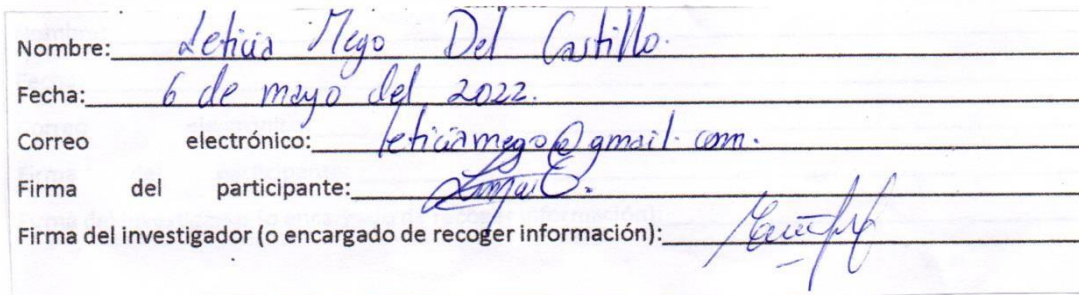 Nombre: Leticia Mego Del Castillo.
Fecha: 6 de mayo del 2022.
Correo electrónico: leticiamego@gmail.com.
Firma del participante:
Firma del investigador (o encargado de recoger información):